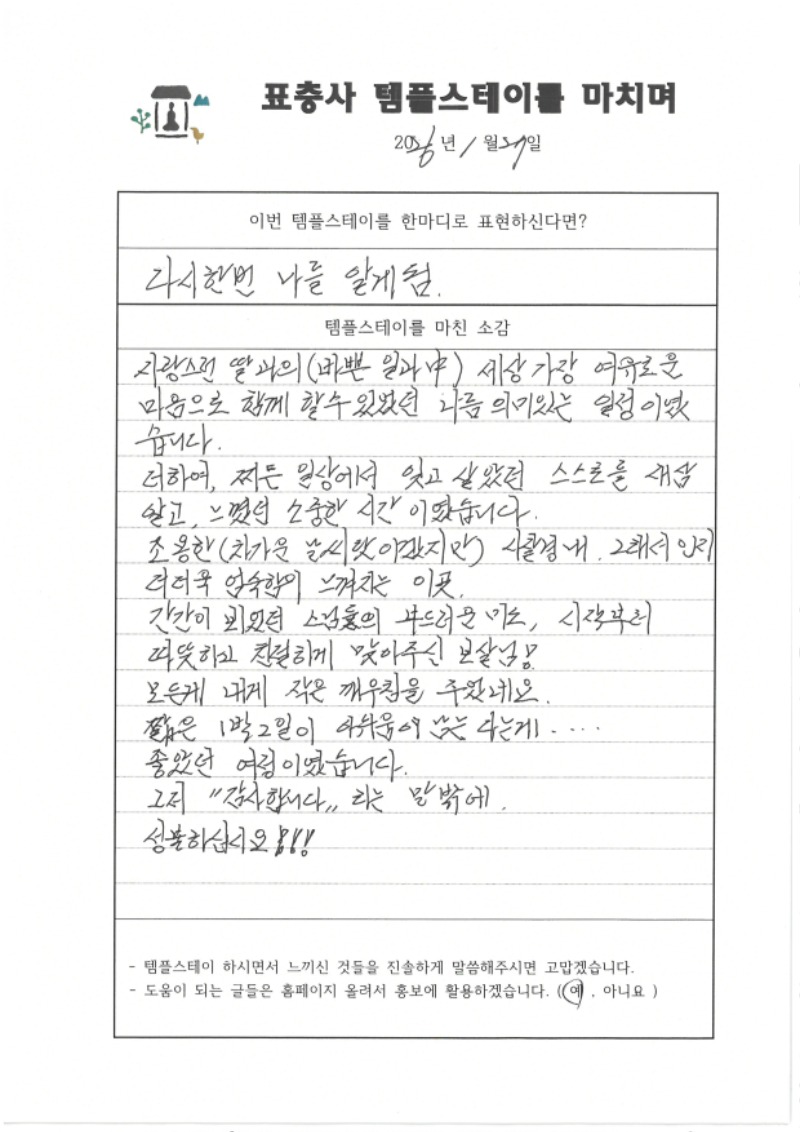 표충사 템플스테이를 마치며
2026년 1월 29일
이번 템플스테이를 한마디로 표현하신다면?
다시한번 나를 알게됨.
템플스테이를 마친 소감
자랑스런 딸과의(바쁜 일과中) 세상가장 여유로운
마음으로 함께 할수있었던 나름 의미있는 일정이였
습니다.
더하여, 찌든 일상에서 잊고 살았던 스스로를 새삼
알고, 느꼈던 소중한 시간이였습니다.
조용한(차가운 날씨탓이겠지만) 사찰경내. 그래서인지
더더욱 엄숙함이 느껴지는 이곳.
간간이 뵈었던 스님들의 부드러운 미소, 시작부터
따뜻하고 친절하게 맞아주신 보살님!
모든게 내게 작은 깨우침을 주었네요.
짧은 1박2일이 아쉬움에 남는다는게....
좋았던 여정이였습니다.
그저 "감사합니다" 라는 말밖에.
성불하십시요!!!
- 템플스테이 하시면서 느끼신 것들을 진솔하게 말씀해주시면 고맙겠습니다.
- 도움이 되는 글들은 홈페이지 올려서 홍보에 활용하겠습니다. (예 , 아니요 )